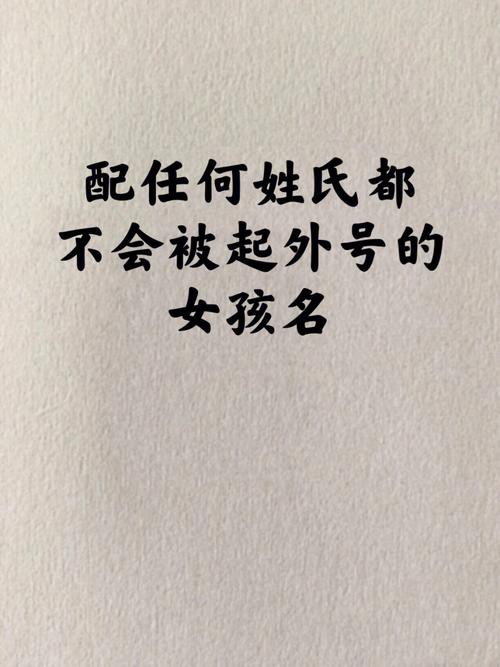 配任何姓氏都
不会被起外号的
女孩名